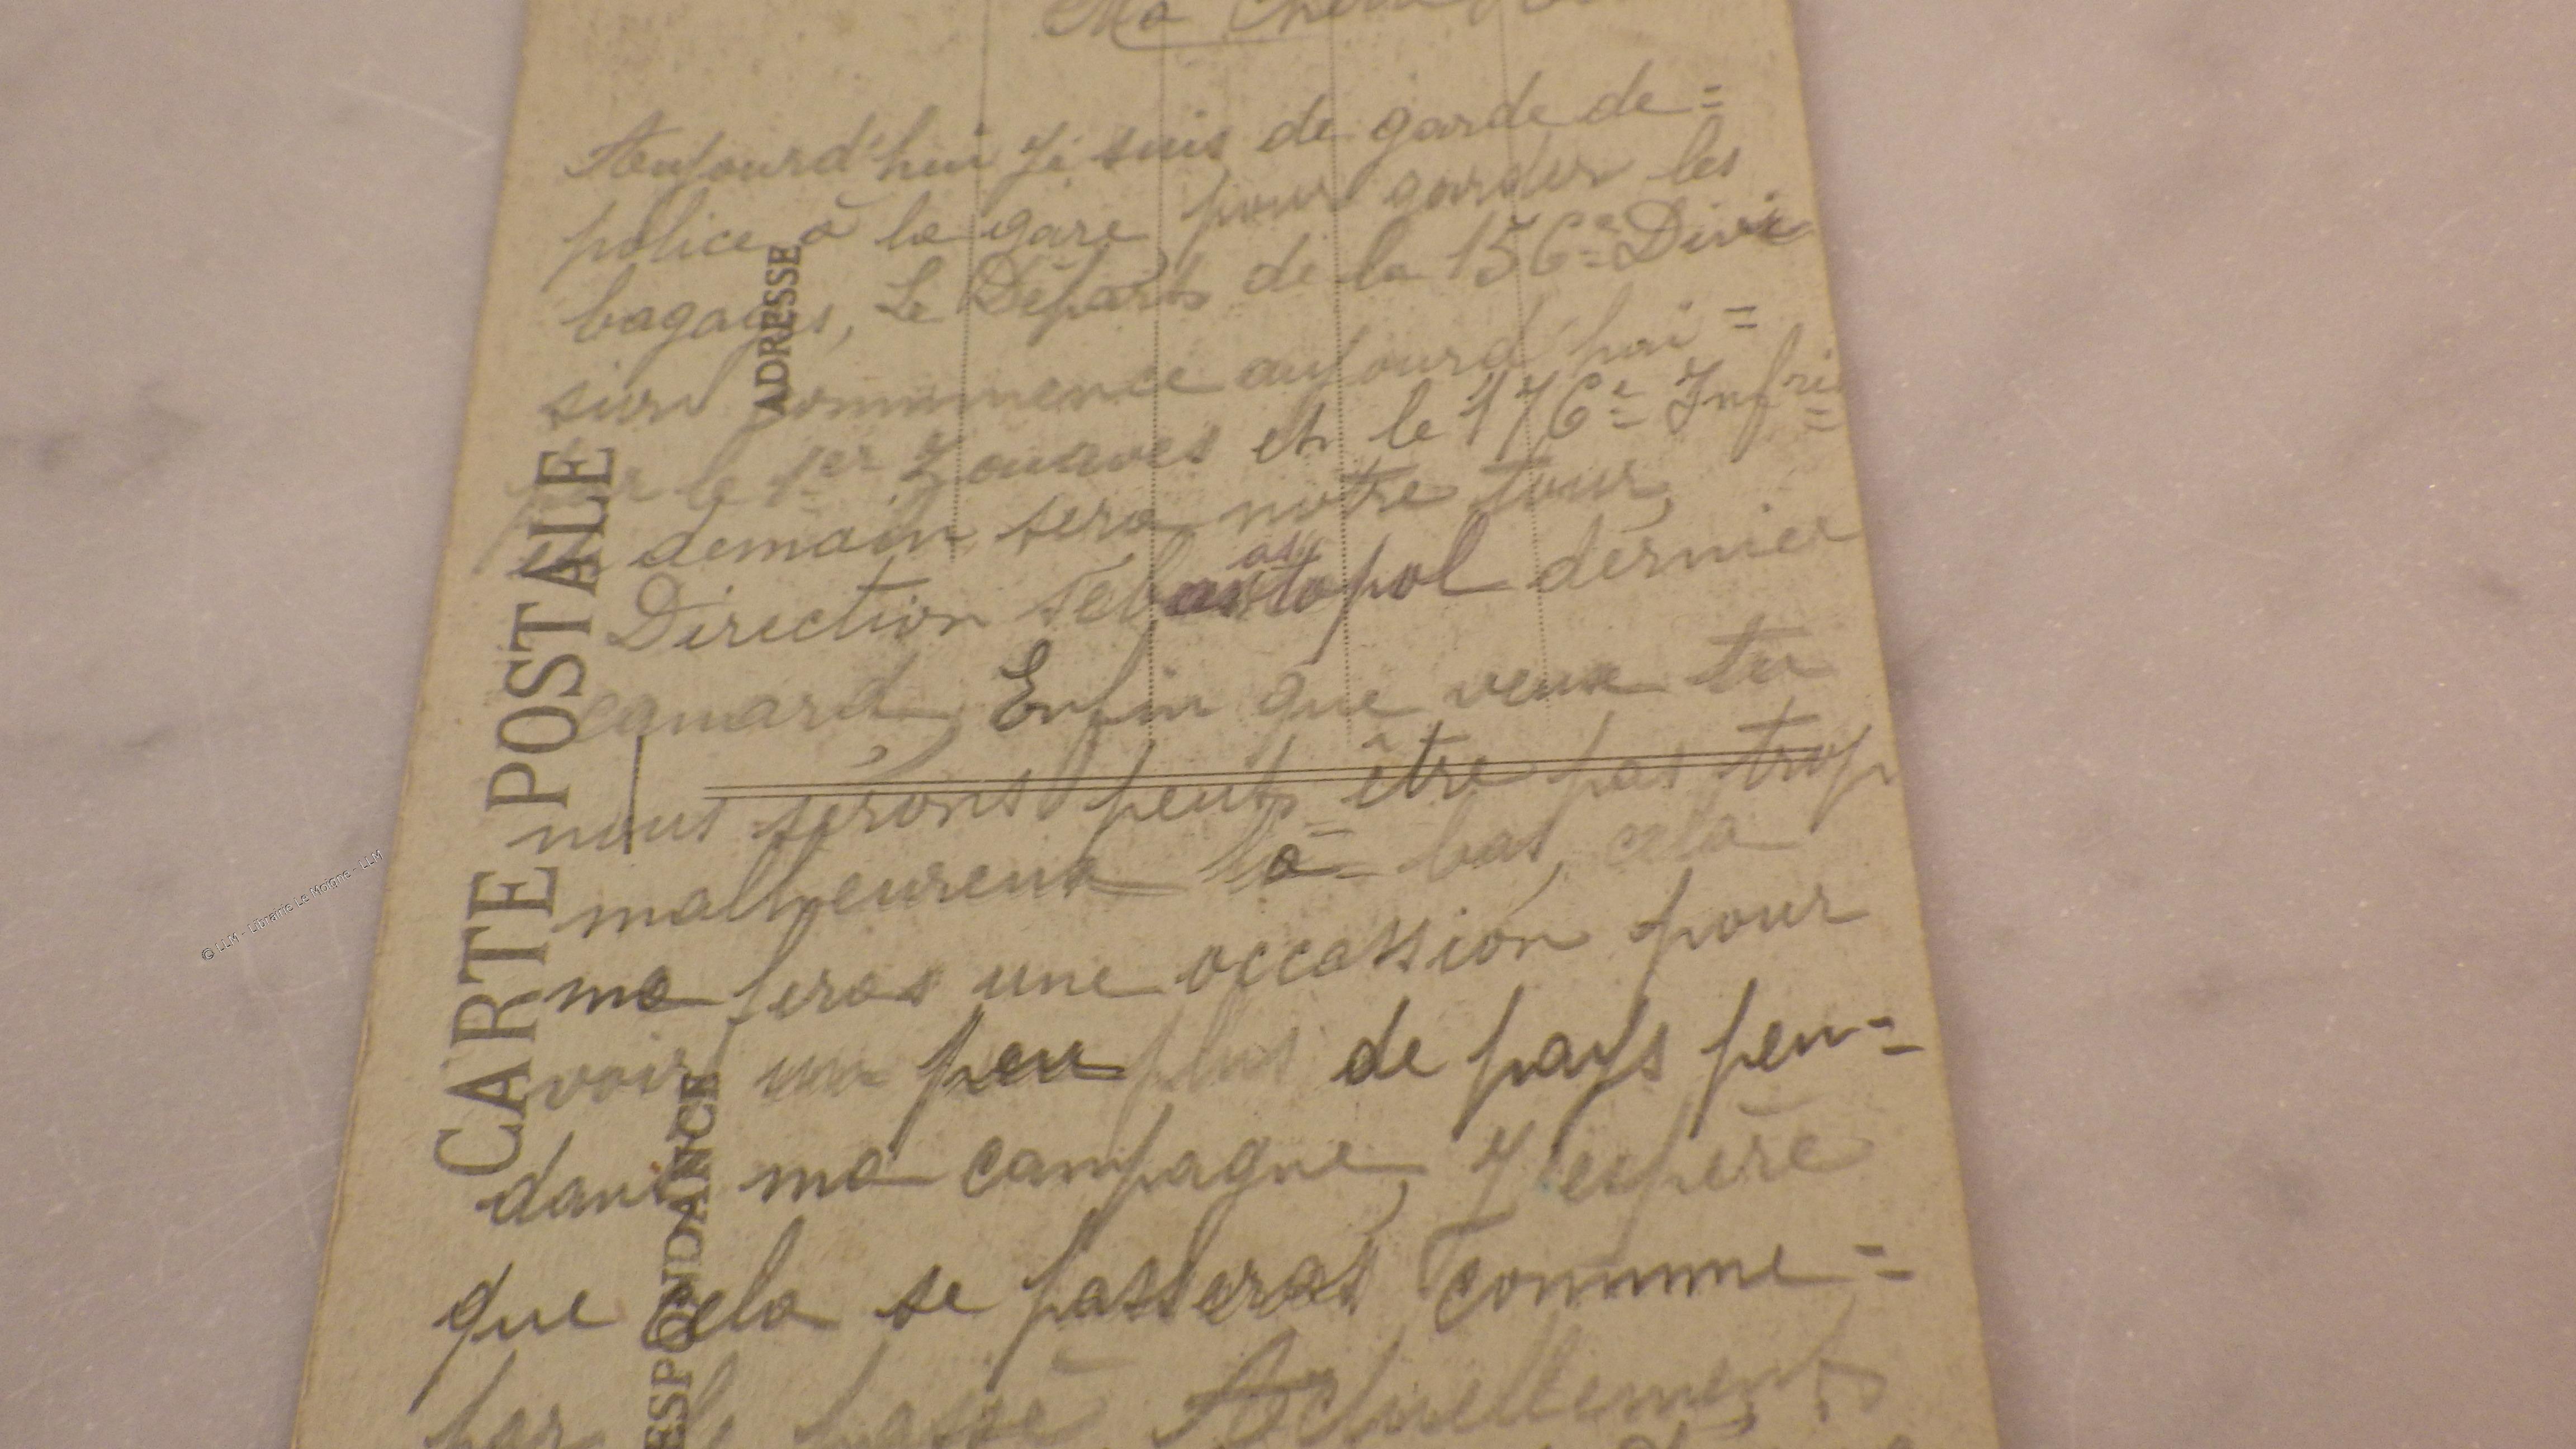 Ma Chère
Aujourd'hui je suis de garde de=
police à la gare pour garder les
bagages, Le Départ de la 156e Divi
sion commence aujourd'hui =
par le 1er Zouaves et le 176e Infrie
et demain sera notre tour,
Direction Sebastopol dernier
as
canard, Enfin que veux tu
nous serons peut être pas trop
malheureux là-bas, cela
ma feras une occassion pour
voir un peu plus de pays pen=
dant ma campagne, J'espère
que cela se passeras comme=
par le passé Actuellement
CARTE POSTALE
ADRESSE
ESPONDANCE
© LLM - Librairie Le Moigne - LLM